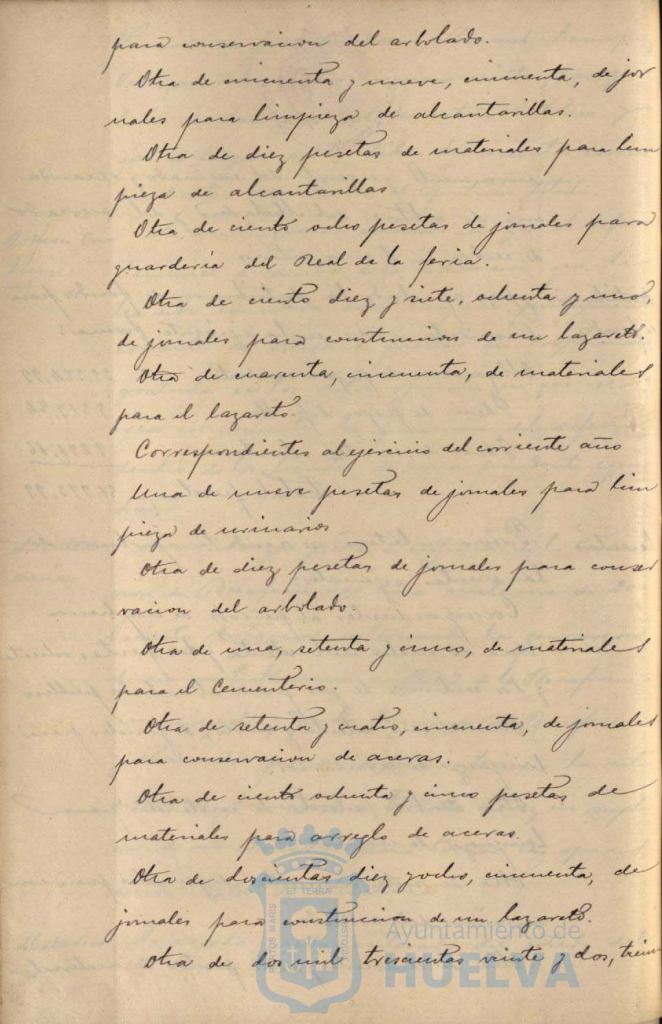 para conservacion del arbolado.
Otra de cincuenta y nueve, cincuenta, de jor
nales para limpieza de alcantarillas.
Otra de diez pesetas de materiales para lim
pieza de alcantarillas
Otra de ciento ocho pesetas de jornales para
guarderia del Real de la feria.
Otra de ciento diez y siete, ochenta y uno,
de jornales para construccion de un lazareto.
Otra de cuarenta, cincuenta, de materiales
para el lazareto.
Correspondientes al ejercicio del corriente año
Una de nueve pesetas de jornales para lim
pieza de urinarios
Otra de diez pesetas de jornales para conser
vacion del arbolado.
Otra de una, setenta y cinco, de materiales
para el Cementerio.
Otra de setenta y cuatro, cincuenta, de jornales
para conservacion de aceras.
Otra de ciento ochenta y cinco pesetas de
materiales para arreglo de aceras.
Otra de doscientas diez y ocho, cincuenta, de
jornales para construccion de un lazareto.
Otra de dos mil trescientas veinte y dos, trein
ET TERRÆ
PORTUS MARIS
CUSTODIA
Ayuntamiento de
HUELVA